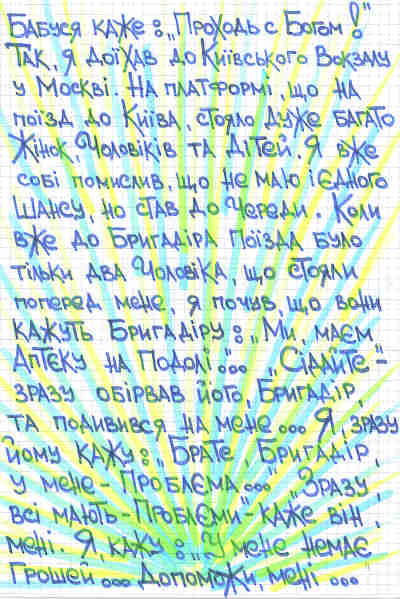 Бабуся каже: „Проходь с Богом!"
Так, я доїхав до Київського Вокзалу
у Москві. На платформі, що на
поїзд до Київа, стояло дуже багато
Жінок, Чоловіків та Дітей. Я вже
собі помислив, що не маю і єдного
Шансу, но став до Череди. Коли
вже до Бригадіра Поїзда було
тільки два Чоловіка, що стояли
поперед мене, я почув, що вони
кажуть Бригадіру: „Ми, маєм
Аптєку на Подолі... „Сідайте"-
зразу обірвав його, Бригадір,
та подивився на мене... Я, зразу
йому кажу: „Брате, Бригадір,
у мене - Проблєма..." „Зразу,
всі мають - Проблєми" - каже він,
мені. Я, кажу: „У мене немає
Грошей... Допоможи, мені..."